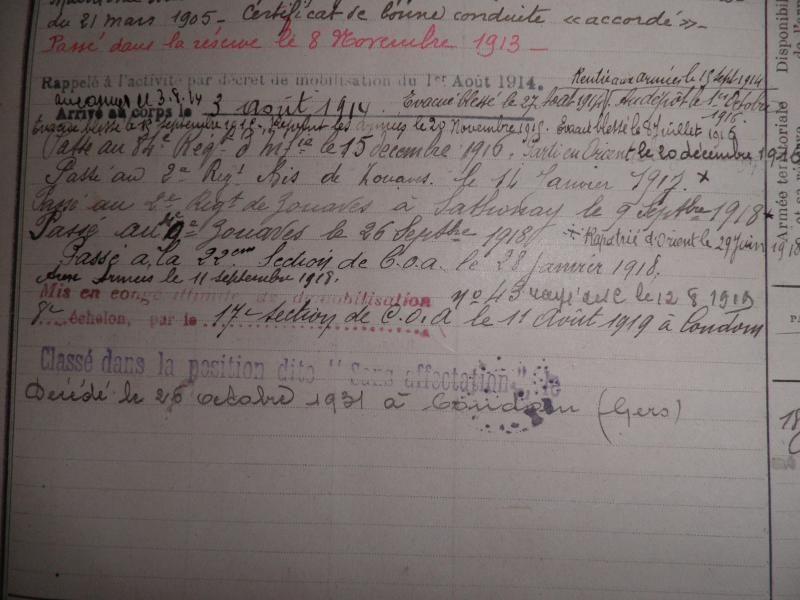 du 21 mars 1905 - Certificat de bonne conduite «accordé» -
Passé dans la réserve le 8 Novembre 1913 -
Rappelé à l'activité par décret de mobilisation du 1er Août 1914. Rentré aux armées le 15 sept 1914
aux armées le 3.8.14
Arrivé au corps le 3 août 1914. Evacué blessé le 27 Août 1914. Au dépôt le 1er Octobre 1916.
Evacué blessé le 15 septembre 1915. Rejoint les armées le 29 Novembre 1915. Evacué blessé le 8 Juillet 1916
Passé au 84e Regt d'Mfie le 15 décembre 1916. Parti en Orient le 20 décembre 1916
Passé au 2e Regt Bis de Zouaves. le 14 Janvier 1917. x
Passé au 2e Regt de Zouaves à Sathonay le 9 Septbre 1918 x
Passé au Zouaves le 26 Septbre 1918 x Rapatrié d'Orient le 29 juin 1918
Passé à la 22eme Section de C.O.A. le 28 janvier 1918.
Aux Armées le 11 septembre 1918.
Mis en congé illimité de démobilisation no 43 rayé des C le 12 8 1919
8e échelon, par le 17e section de C.O.A le 11 Août 1919 à Condom
Classé dans la position dite "Sans affectation", le
Décédé le 26 octobre 1931 à Condom (Gers)
Disponibilité
Armée territoriale